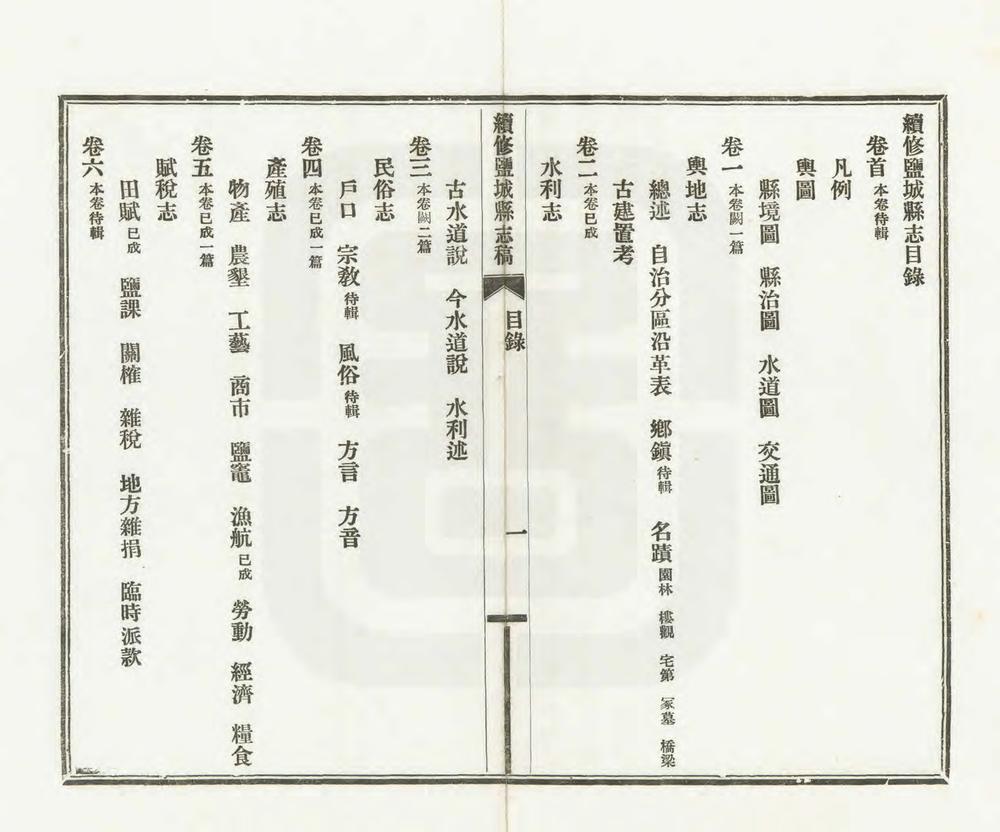 續修鹽城縣志目錄
卷首 本卷待輯
凡例
輿圖
縣境圖 縣治圖 水道圖 交通圖
卷一 本卷闕一篇
輿地志
總述 自治分區沿革表 鄉鎭 待輯 名蹟 園林 樓觀 宅第 冢墓 橋梁
古建置考
卷二 本卷已成
水利志
續修鹽城縣志稿 目錄 一
古水道說 今水道說 水利述
卷三 本卷闕二篇
民俗志
戶口 宗敎 待輯 風俗 待輯 方言 方音
卷四 本卷已成一篇
產殖志
物產 農墾 工藝 商市 鹽竈 漁航 已成 勞動 經濟 糧食
卷五 本卷已成一篇
賦稅志
田賦 已成 鹽課 關榷 雜稅 地方雜捐 臨時派款
卷六 本卷待輯